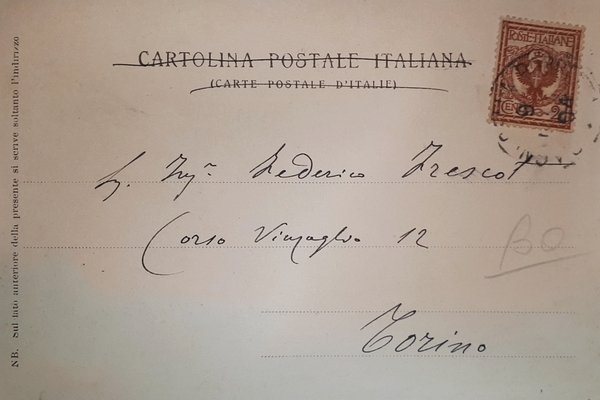 CARTOLINA POSTALE ITALIANA
(CARTE POSTALE D'ITALIE)
POSTE ITALIANE
2
Ing. Federico Frescot
Corso Vinzaglio 12
Torino
BO
NB. Sul lato anteriore della presente si scrive soltanto l'indirizzo